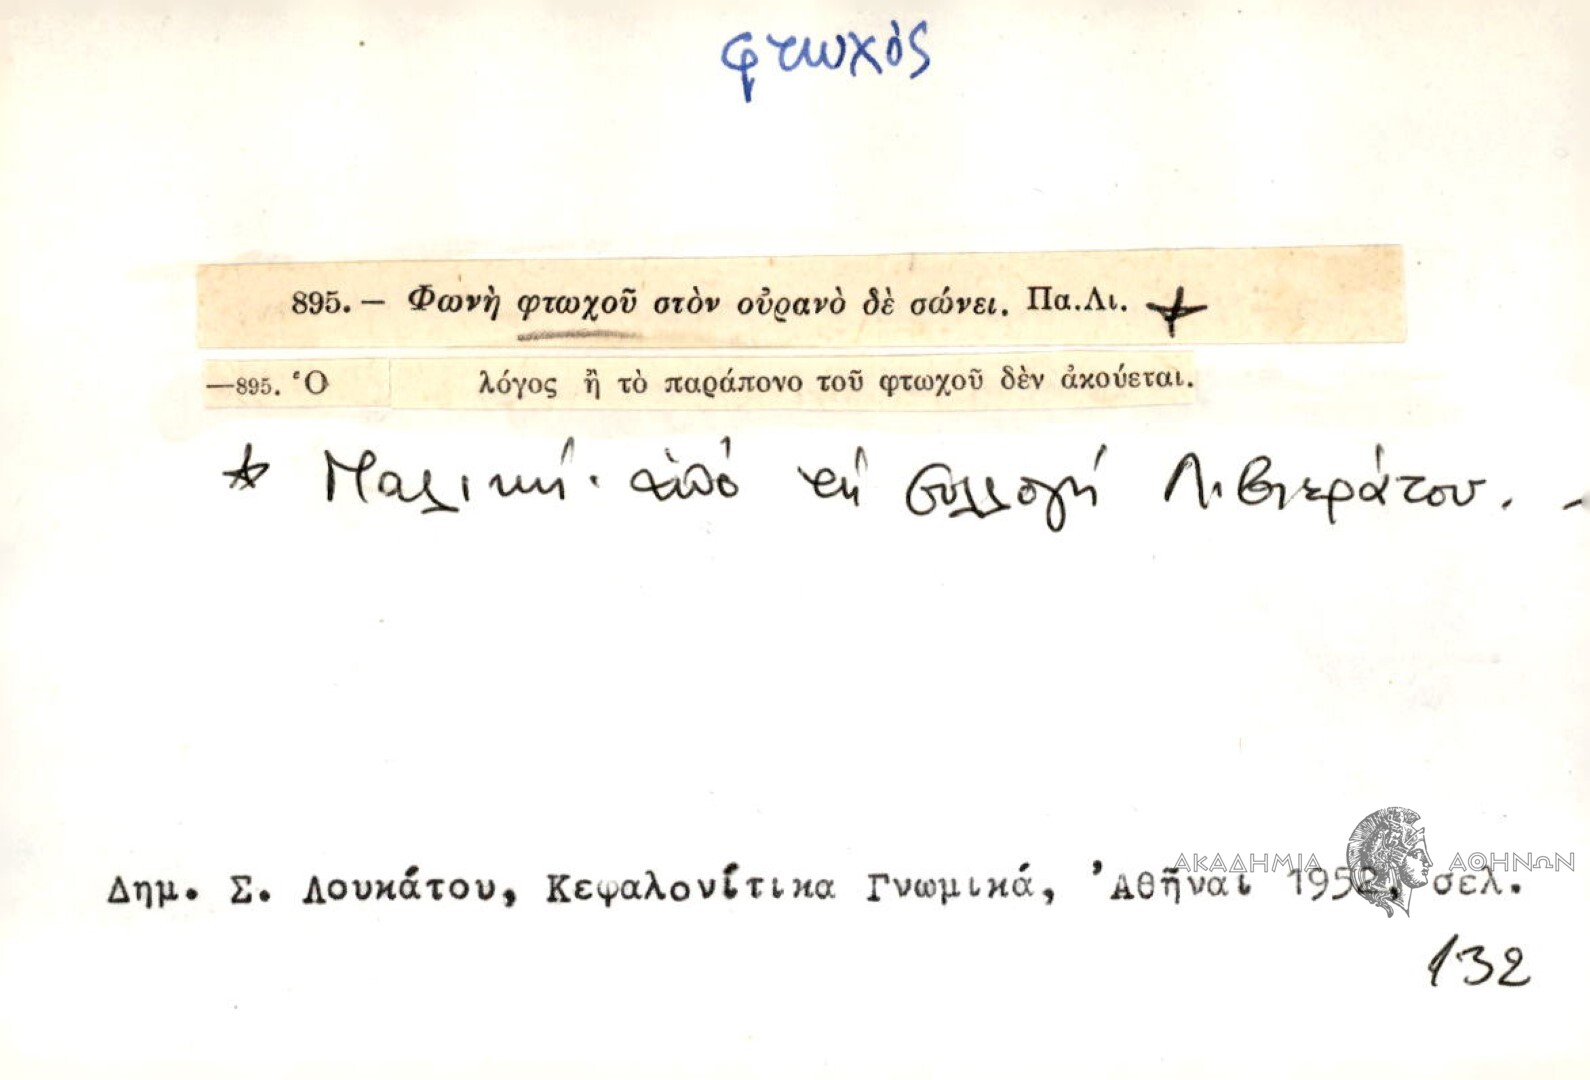 φτωχὸς
895. — Φωνὴ φτωχοῦ στὸν οὐρανὸ δὲ σώνει. Πα.Λι.
—895. Ὁ λόγος ἢ τὸ παράπονο τοῦ φτωχοῦ δὲν ἀκούεται.
* Παλική. ἀπό τή συλλογή Λιβιεράτου.
ΑΚΑΔΗΜΙΑ ΑΘΗΝΩΝ
Δημ. Σ. Λουκάτου, Κεφαλονίτικα Γνωμικά, Ἀθῆναι 1952, σελ.
132